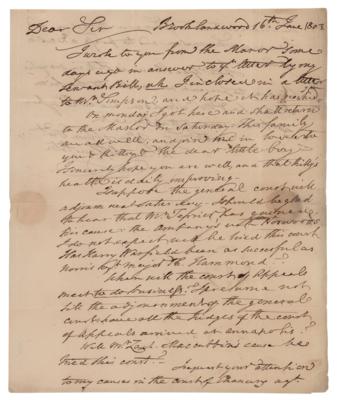 Dear Sir Brooklandwood 16th June 1803
I wrote to you from the Manor some
days ago in answer to yr letter by my
servant Bill, wh I inclosed in a letter
to Mr Simpson, and hope it has reached
On monday I got here and shall return
to the Manor on Saturday. This family
are all well, and join me in love to
you & Kitty & the dear little boy
I sincerely hope you are well, and that Kitty's
health is daily improving.
I suppose the general court will
adjourn next saturday. I should be glad
to hear that
his cause: the Company's with Norwood
I do not expect will be tried this court
Has Harry Warfield been as successful as
Norris
When will the court of Appeals
meet to do business? I presume not
till the adjournment of the general
court: have all the judges of the court
of Appeals arrived at Annapolis?
Will Mr cause be
tried this court? I request your attention
to my causes in the court of Chancery agt